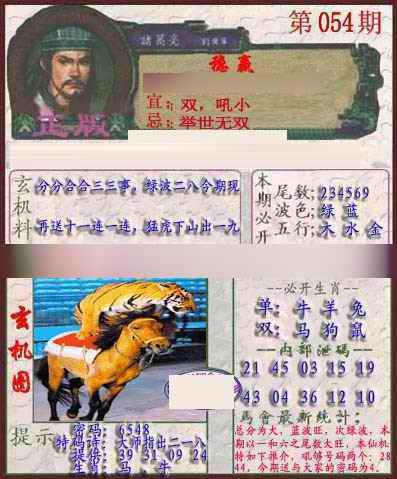 第054期
諸葛亮
稳赢
宜:双，吼小
忌:举世无双
正版
玄机料
分分合合三三事，绿波二八今期现
再送十一连一连，猛虎下山出一九
本期必开
尾数:234569
波色:绿 蓝
五行:木 水 金
玄机图
--必开生肖--
单: 牛 羊 兔
双: 马 狗 鼠
--内部泄码--
21 45 03 15 19
43 04 36 12 10
馬會最新統計:
总分为大，蓝波旺，次绿波，本期以一和六之尾数大旺，本仙机特如下推介，吼够号码两个: 28 44，今期送与大家的密码为4.
提示
密码: 6548
特码诗: 大师指出二一八
提供: 39 31 09 24
生肖: 马、牛